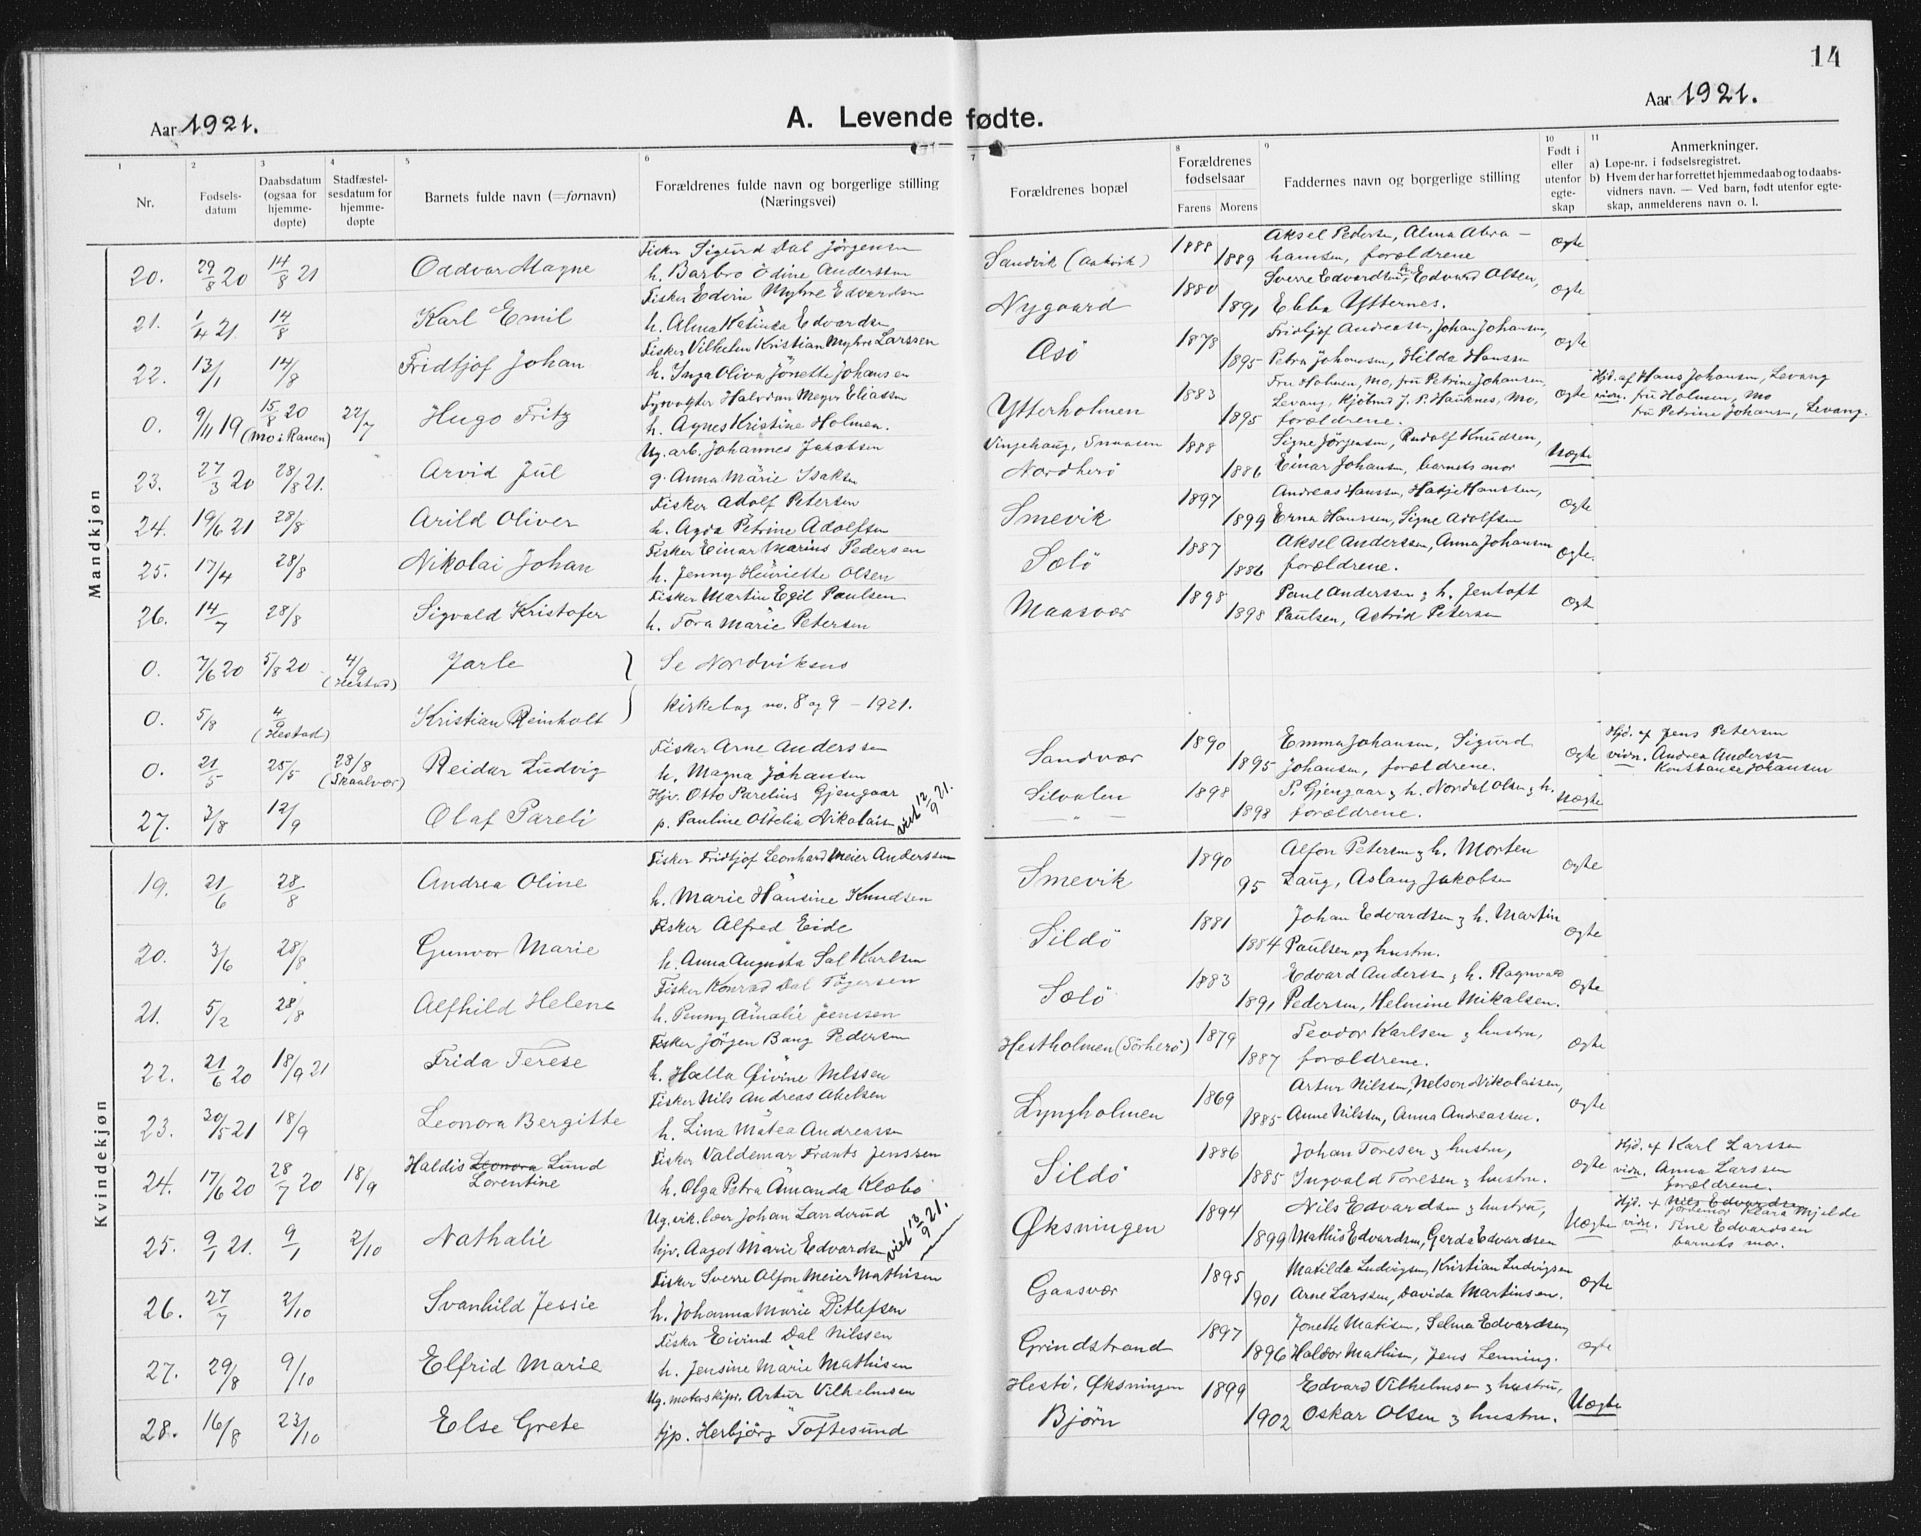 14
Aar 1921.
A. Levende fødte.
Aar 1921.
1
2
3
4
5
6
7
8
9
10
11
Nr.
Fødsels-
datum
Daabsdatum
(ogsaa for
hjemme-
døpte)
Stadfæstel-
sesdatum for
hjemme-
døpte
Barnets fulde navn (=fornavn)
Forældrenes fulde navn og borgerlige stilling
(Næringsvei)
Forældrenes bopæl
Forældrenes
fødselsaar
Farens Morens
Faddernes navn og borgerlige stilling
Født i
eller
utenfor
egte-
skap
Anmerkninger.
a) Løpe-nr. i fødselsregistret.
b) Hvem der har forrettet hjemmedaab og to daabs-
vidners navn. — Ved barn, født utenfor egte-
skap, anmelderens navn o. l.
Mandkjøn
20. 29/8 20 14/8 21 Oddvar Magne
Fisker Sigurd Dal Jørgensen
h. Barbro Odine Anderssen
Sandvik (Aakvik) 1888 1889
Aksel Pedersen, Alma Abra-
hamsen, forældrene
Ægte
21. 1/4 21. 14/8 Karl Emil
Fisker Edvin Myhre Edvardsen
h. Alma Katinka Edvardsen
Nygaard 1880 1891
Sverre Edvardsen, Edvard Olsen,
Ebba Ytternes.
Ægte
22. 13/1 14/8 Fridtjof Johan
Fisker Vilhelm Kristian Myhre Larssen
h. Inga Oliva Jonette Johansen
Asø 1878 1895
Fridtjof Andreassen, Johan Johansen,
Petra Johansen, Hilda Hanssen
Ægte
0. 9/11 19 15/8 20 (Mo i Ranen) 22/7 Hugo Fritz
Fyrvogter Halvdan Meyer Eliassen
h. Agnes Kristine Holmen.
Ytterholmen 1883 1895
Fru Holmen, Mo, fru Petrine Johansen,
Levang, kjøbmd J. P. Hauknes, Mo,
forældrene.
Ægte
Hjd. af Hans Johansen, Levang
vidn. fru Holmen, Mo
fru Petrine Johansen, Levang.
23. 27/3 20 28/8 21. Arvid Jul
Ug. arb. Johannes Jakobsen
g. Anna Marie Isaksen
Vinjehaug, Snaasen
Nordherø 1888 1886
Signe Jørgensen, Rudolf Knudsen,
Einar Johansen, barnets mor
Uægte
24. 19/6 21 28/8 Arild Oliver
Fisker Adolf Petersen
h. Agda Petrine Adolfsen
Smevik 1897 1899
Andreas Hanssen, Hanssen,
Erna Hanssen, Signe Adolfsen
Ægte
25. 17/4 28/8 Nikolai Johan
Fisker Einar Marius Pedersen
h. Jenny Henriette Olsen
Sælø 1887 1886
Aksel Anderssen, Anna Johansen
forældrene.
Ægte.
26. 14/7 28/8 Sigvald Kristofer
Fisker Martin Egil Paulsen
h. Tora Marie Petersen
Maasvær 1898 1898
Paul Anderssen & h. Jentoft
Paulsen, Astrid Petersen
Ægte
0. 7/6 20 5/8 20 4/9 (Hestad) Jarle
Se Nordviksnes
0. 5/8 4/9 (Hestad) Kristian Reinholt
kirkebog no. 8 og 9 – 1921.
0. 21/5 25/5 28/8 (Skaalvær) Reidar Ludvig
Fisker Arne Anderssen
h. Magna Johansen
Sandvær 1890 1895
Emma Johansen, Sigurd
Johansen, forældrene.
Ægte
Hjd. af Jens Petersen
vidn. Andrea Anderssen
Konstanse Johansen
27. 3/8 12/9 Olaf Pareli
Hjv. Otto Parelius Gjengaar
p. Pauline Ottelia Nikolaisen viet 12/9 21.
Silvalen 1898 1898
P. Gjengaar & h. Nordal Olsen & h.
forældrene.
Uægte
Kvindekjøn
19. 21/6 28/8 Andrea Oline
Fisker Fridtjof Leonhard Meier Anderssen
h. Marie Hansine Knudsen
Smevik 1890 95
Alfon Petersen & h. Morten
Laug, Aslaug Jakobsen
Ægte
20. 3/6 28/8 Gunvor Marie
Fisker Alfred Eide
h. Anna Augusta Sal Karlsen
Sildø 1881 1884
Johan Edvardsen & h. Martin
Paulsen og hustru.
Ægte
21. 5/2 28/8 Alfhild Helene
Fisker Konrad Dal Tøgersen
h. Penny Amalie Jenssen
Sælø 1883 1891
Edvard Anderssen & h. Ragnvald
Pedersen, Helmine Mikalsen.
Ægte
22. 21/6 20 18/9 21 Frida Terese
Fisker Jørgen Bang Pedersen
h. Halla Øivine Nilssen
Hestholmen (Sørherø) 1879 1887
Teodor Karlsen & hustru,
forældrene.
Ægte
23. 30/5 21 18/9 Leonora Bergitte
Fisker Nils Andreas Akelsen
h. Lina Matea Andreassen
Lyngholmen 1869 1885
Artur Nilssen, Nelson Nikolaisen,
Anne Nilssen, Anna Andreassen.
Ægte
24. 17/6 20 28/7 20 18/9 Haldis Leonora Lund
Lorentine
Fisker Valdemar Frants Jenssen
h. Olga Petra Amanda Klæbo
Sildø 1886 1885
Johan Toresen & hustru,
Ingvald Toresen & hustru.
Ægte
Hjd. af Karl Larssen
vidn. Anna Larssen
forældrene.
25. 9/1 21. 9/1 2/10 Nathalie
Ug. vik. lær Johan Landerud
hjv. Aagot Marie Edvardsen viet 13/9 21.
Øksningen 1894 1899
Nils Edvardsen & hustru,
Mathis Edvardsen, Gerda Edvardsen
Uægte
Hjd. af Nils Edvardsen
jordemor Klara Mjelde
vidn. Tine Edvardsen
barnets mor.
26. 27/7 2/10 Svanhild Jessie
Fisker Sverre Alfon Meier Mathisen
h. Johanna Marie Ditlefsen
Gaasvær 1895 1901
Matilda Ludvigsen, Kristian Ludvigsen
Arne Larssen, Davida Martinsen.
Ægte
27. 29/8 9/10 Elfrid Marie
Fisker Eivind Dal Nilssen
h. Jensine Marie Mathisen
Grindstrand 1897 1896
Jonette Matisen, Selma Edvardsen,
Haldor Mathisen, Jens Lenning.
Ægte
28. 16/8 23/10 Else Grete
Ug. motorskipr. Artur Vilhelmsen
tjp. Herbjørg Toftesund
Hestø, Øksningen
Bjørn 1899 1902
Edvard Vilhelmsen & hustru,
Oskar Olsen & hustru.
Uægte